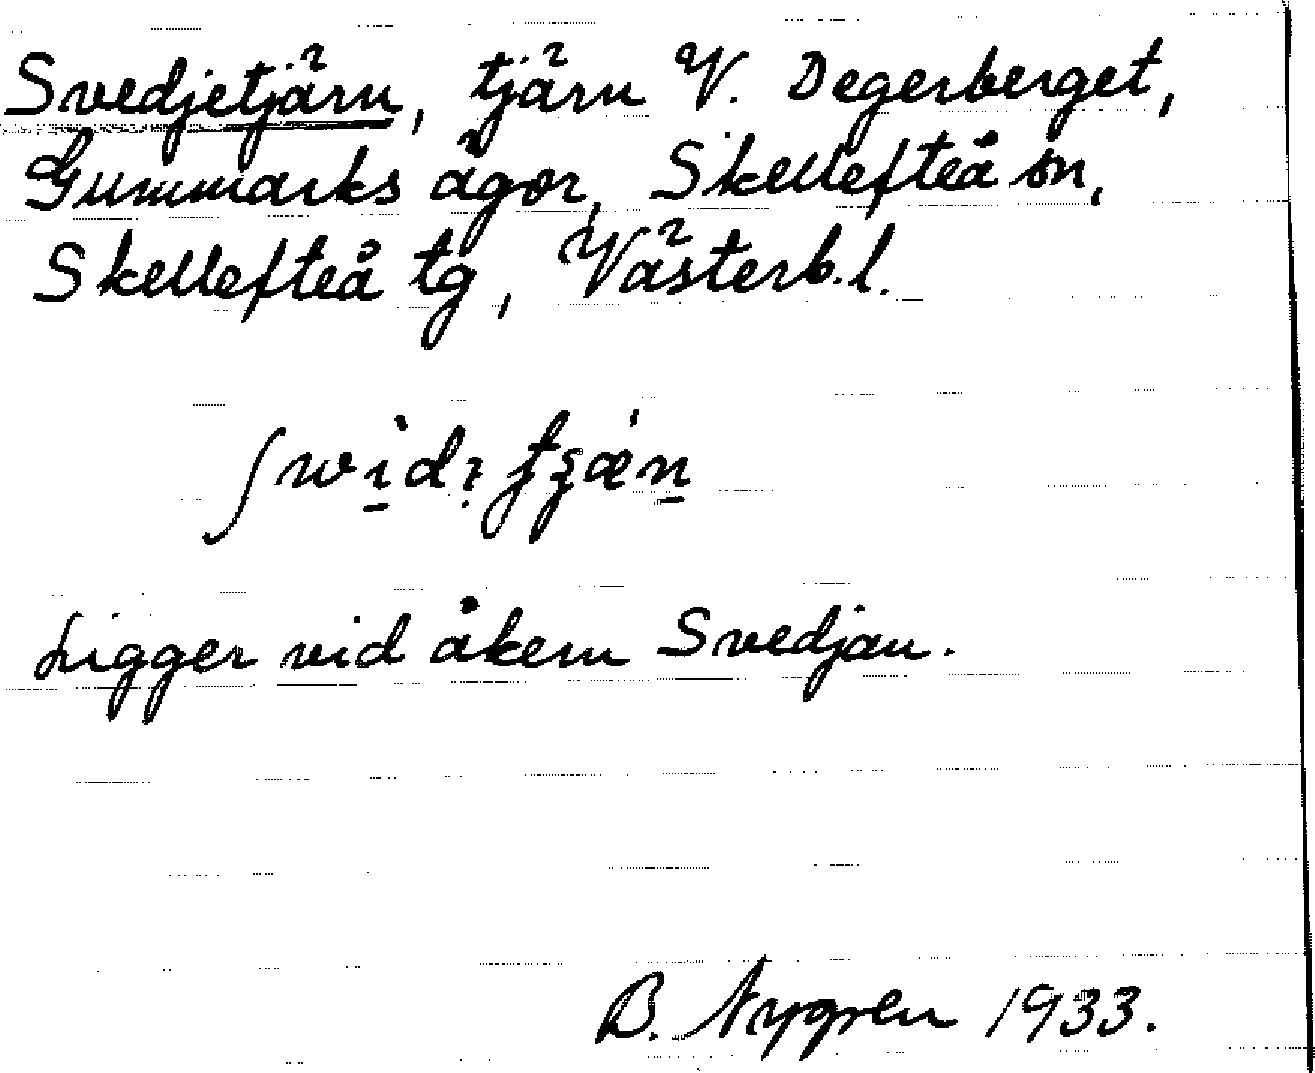 Svedjetjärn, tjärn V. Degerberget,
Gummarks ägor, Skellefteå sn,
Skellefteå tg, Västerb. l.
Ligger vid åkern Svedjan.
B. Nygren 1933.